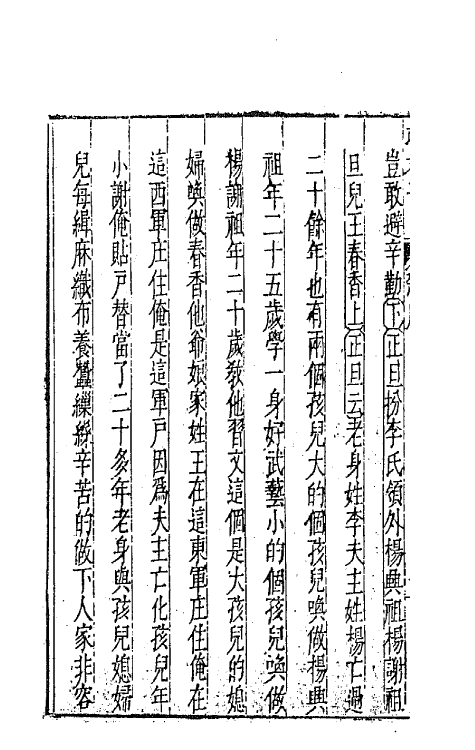 豈敢避辛勤下正旦扮李氏領外楊興祖楊謝祖
旦兒王春香上正旦云老身姓李夫主姓楊亡過
二十餘年也有兩個孩兒大的個孩兒喚做楊興
祖年二十五歲學一身好武藝小的個孩兒喚做
楊謝祖年二十歲敎他習文這個是大孩兒的媳
婦喚做春香他爺娘家姓王在這東軍庄住俺在
這西軍庄住俺是這軍戸因爲夫主亡化孩兒年
小謝俺貼戸替當了二十多年老身與孩兒媳婦
兒每緝麻織布養蠶繰絲辛苦的做下人家非容